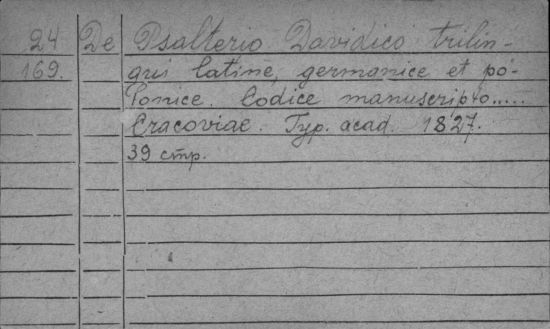 24 De Psalterio Davidico trilin-
169. gui latine, germanice et po-
lonice. Codice manuscripto.....
Cracoviae. Typ. acad. 1827.
39 стр.